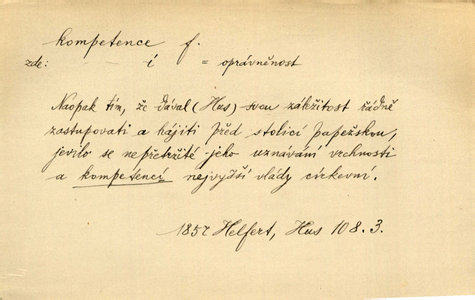 kompetence f.
zde: – – í = oprávněnost
Naopak tím, že dával (Hus) svou záležitost řádně
zastupovati a hájiti před stolicí papežskou,
jevilo se nepřetržité jeho uznávání vrchnosti
a kompetencí nejvyšší vlády církevní.
1857 Helfert, Hus 108. 3.